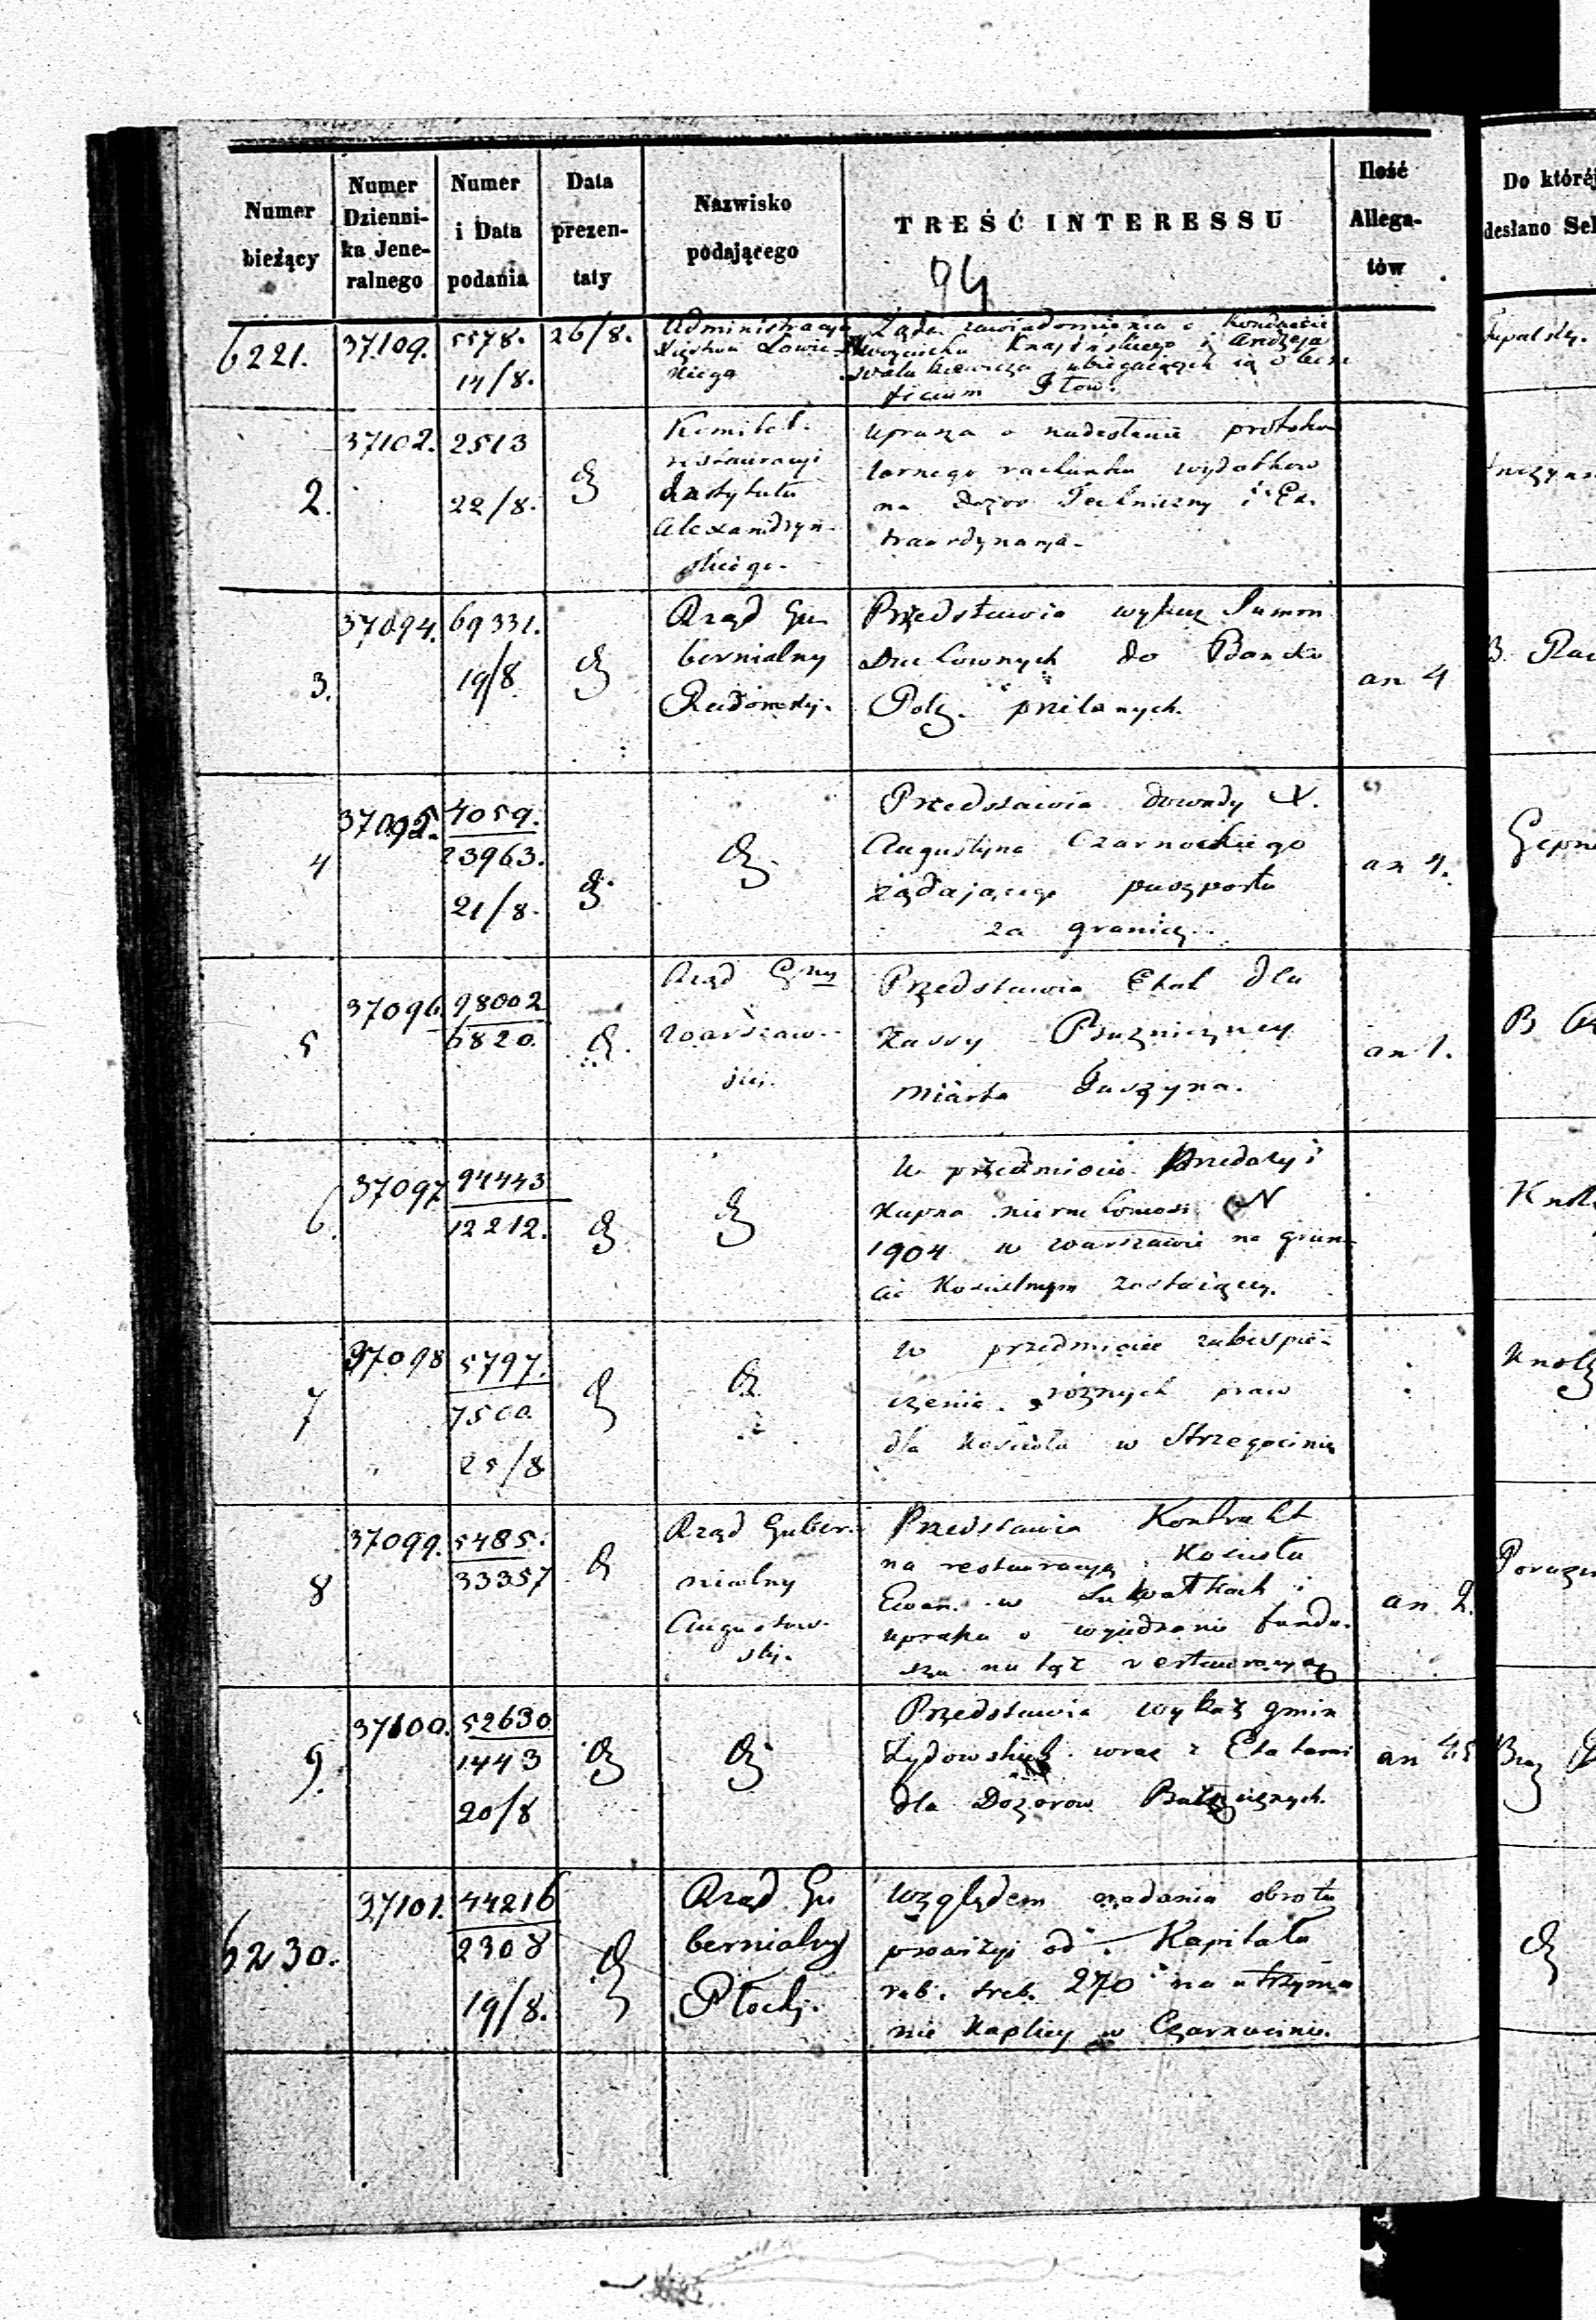 Numer bieżący
Numer Dzienni-ka Jene-ralnego
Numer i Data podania
Data prezen-taty
Nazwisko podającego
TREŚĆ INTERESSU
Ilość Allega-tów
Do któréj
desłano
94
6221. 37109. 5578. 14/8. 26/8.
Administracya
Xięstwa Łowic-
kiego
Żąda zawiadomienia o Kondu
i Andrzeja
ubiegających się o bene
ficium
2. 37102. 2513 22/8.
Komitet
restauracyi
Instytutu
Alexandryń-
skiego.
Uprasza o nadesłanie protoku
larnego rachunku wydatkow
na dozor Techniczny i Ex.
traordynarya.
3. 37094. 69331. 19/8
Rząd Gu
bernialny
Radomski.
Przedstawia wykaz Summ
Duchownych do Banku
Pols. przelanych.
an 4
4 37095. 4059. 23963. 21/8.
Przedstawia dowody X.
Augustyna Czarnockiego
żądającego paszportu
za granicę.
an 4.
5 37096. 98002 6820.
Rząd Gny
Warszaw-
ski.
Przedstawia Etat dla
Kassy Bożniczney
Miasta Tuszyna.
an 1.
6. 37097 94443 12212.
W przedmiocie przedaży i
Kupna nieruchomosci N
1904 w Warszawie na grun-
cie Kościelnym
7 37098 5797. 7500. 25/8
W przedmiocie zabespie-
czenia różnych praw
dla Kościoła w Strzegocinie
8 37099. 5485. 33357
Rząd Guber-
nialny
Augustow-
ski.
Przedstawia Kontrakt
na restauracyą Kościoła
Ewan. w Suwałkach i
uprasza o wyjednanie fundu.
szu na tęż restauracyą
an 2.
9. 37100. 52630 1443 20/8
Przedstawia wykaz gmin
Żydowskich wraz z Etatami
dla Dozorow Bożniczych.
an 45
6230. 37101. 44216 2308 19/8.
Rząd Gu
bernialny
Płocki.
Względem nadania obrotu
prowizyi od Kapitału
rub. sreb. 270 na utrzyma
nie Kaplicy w Czarnocinie.